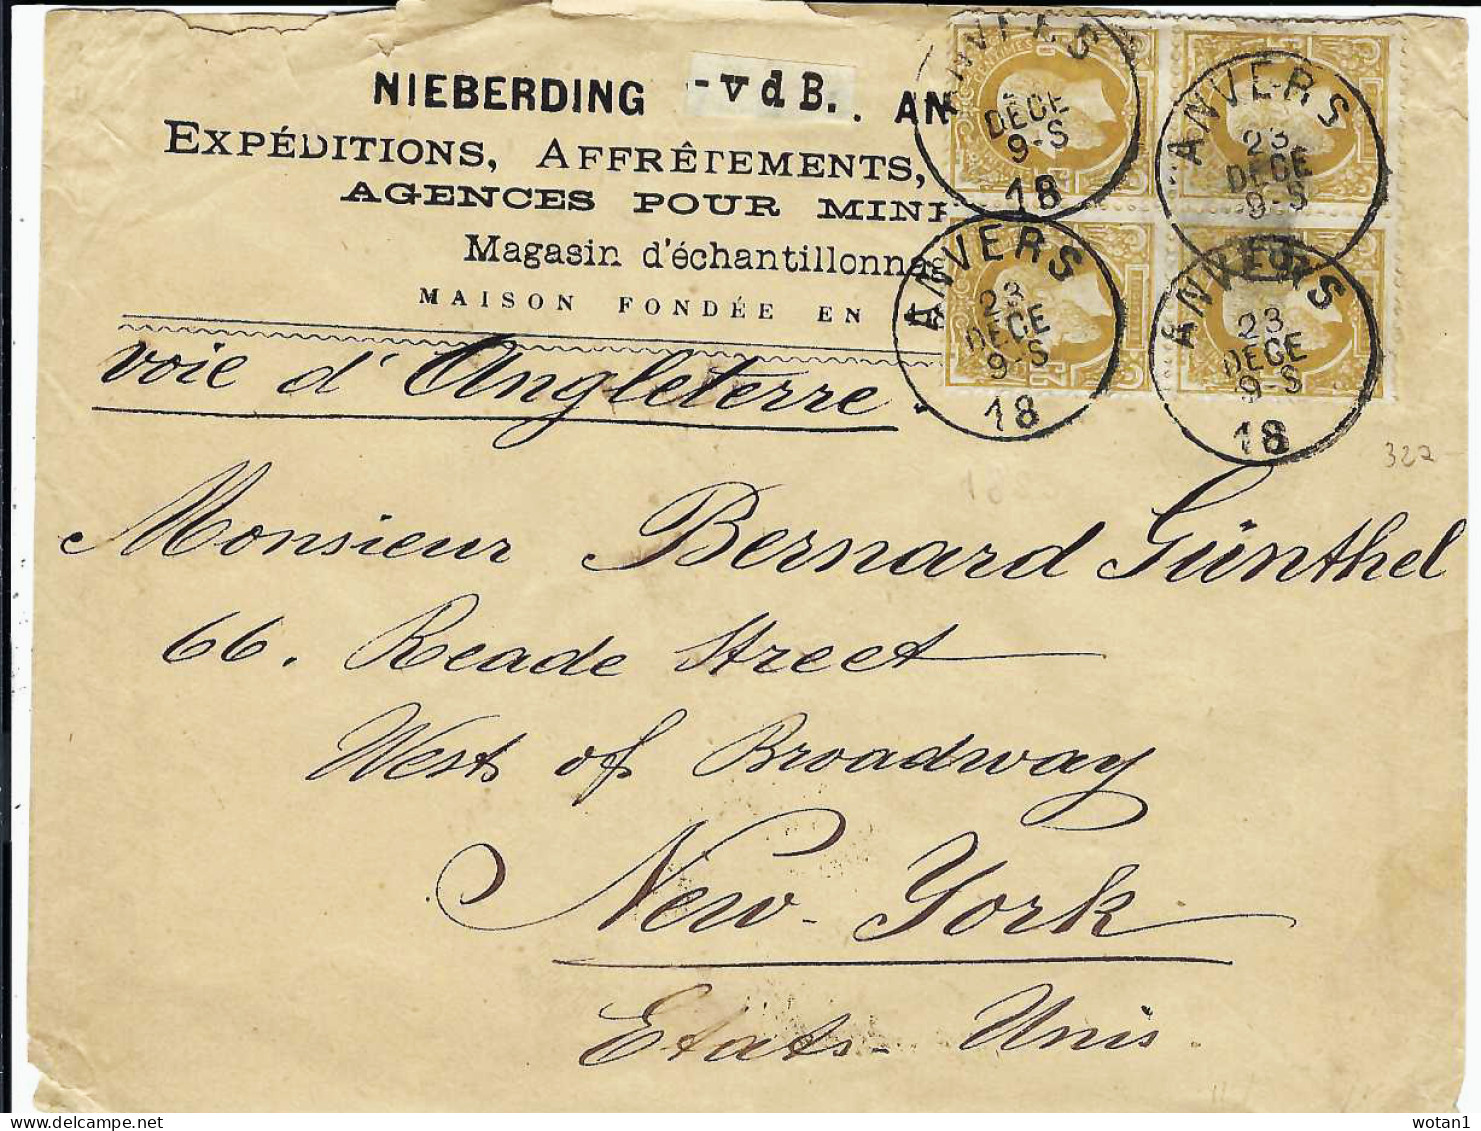 NIEBERDING -vdB. . AN
EXPÉDITIONS, AFFRÊTEMENTS,
AGENCES POUR MINE
Magasin d'échantillonnag
MAISON FONDÉE EN
voie d'Angleterre.
ANVERS
DECE
9-S
18
ANVERS
23
DECE
9-S
ANVERS
23
DECE
9-S
18
ANVERS
23
DECE
9-S
18
CENTIMES
322-
Monsieur Bernard Günthel
66. Reade Street
West of Broadway
New-York
Etats-Unis.
wotan1